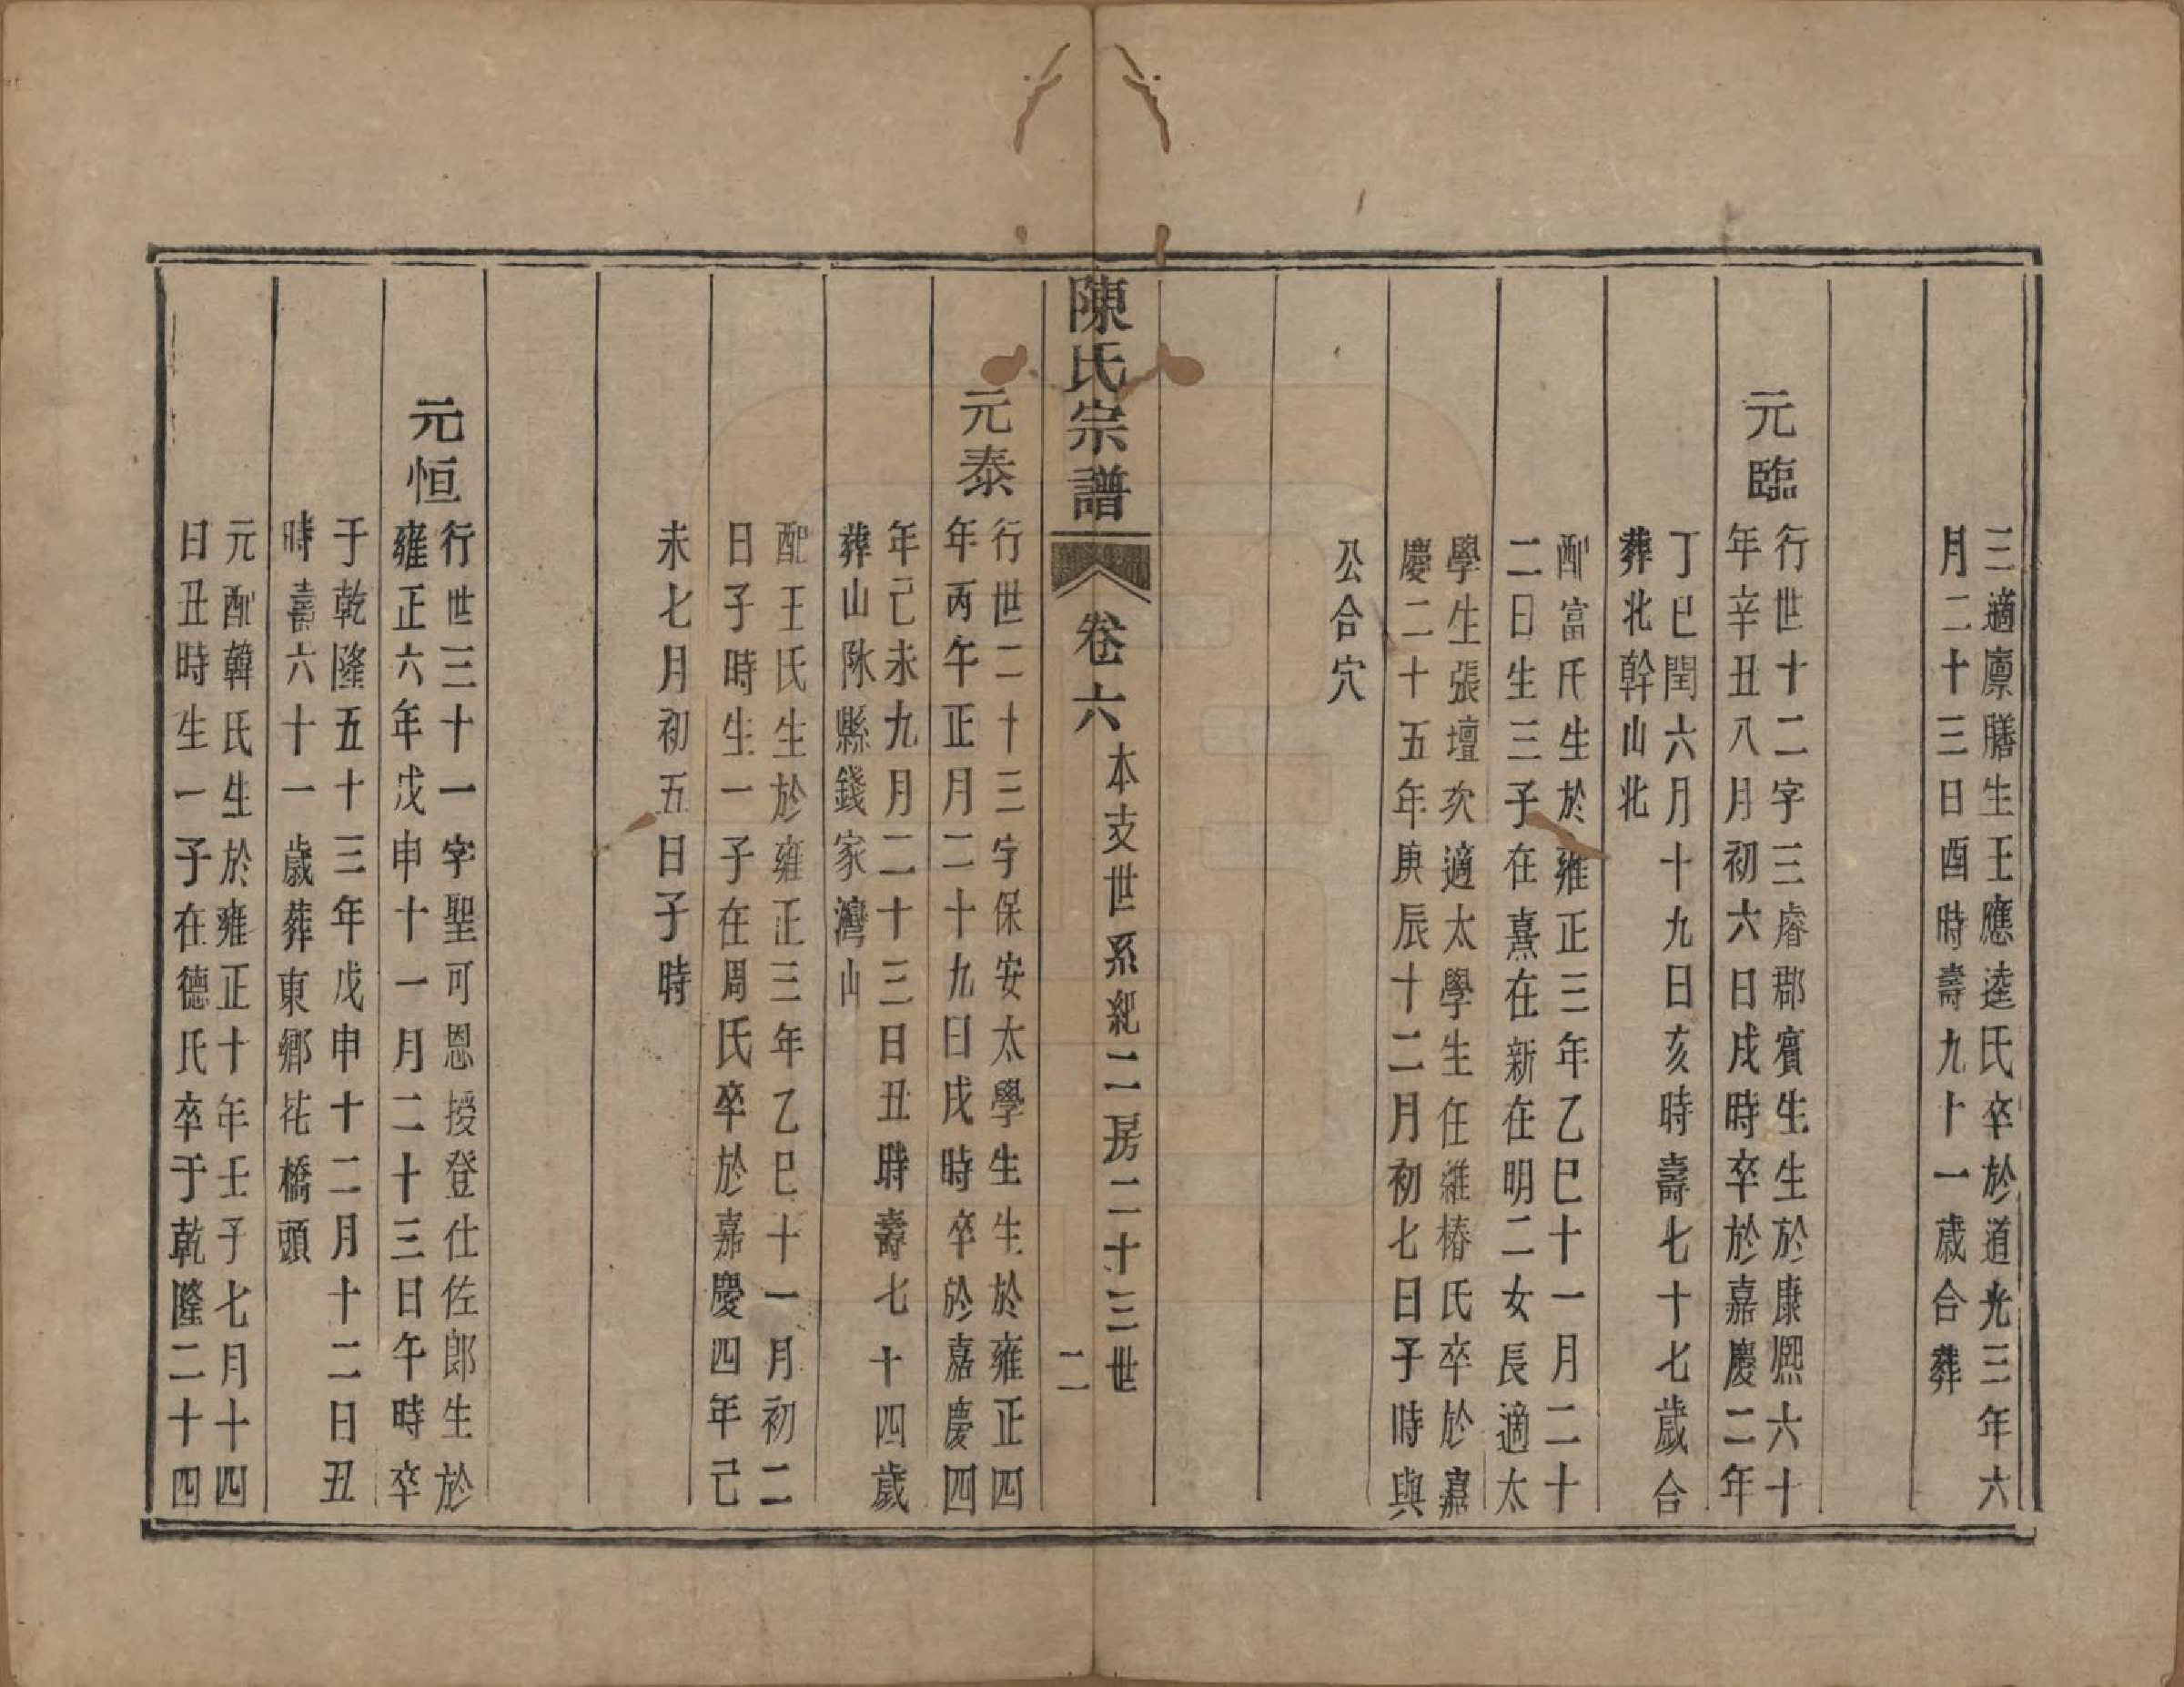 三適廪膳生王應逵氏卒於道光三年六
月二十三日酉時壽九十一歲合葬
元臨
行世十二字三睿郡賓生生於康熙六十
年辛丑八月初六日戌時卒於嘉慶二年
丁巳閏六月十九日亥時壽七十七歲合
葬北幹山北
配富氏生於雍正三年乙巳十一月二十
二日生三子在熹在新在明二女長適太
學生張壇次適太學生任維椿氏卒於嘉
慶二十五年庚辰十二月初七日子時與
公合穴
陳氏宗譜
卷六
本支世系紀二房二十三世
二
元泰
行世二十三字保安太學生生於雍正四
年丙午正月二十九日戌時卒於嘉慶四
年己未九月二十三日丑時壽七十四歲
葬山陰縣錢家灣山
配王氏生於雍正三年乙巳十一月初二
日子時生一子在周氏卒於嘉慶四年己
未七月初五日子時
元恒
行世三十一字聖可恩授登仕佐郎生於
雍正六年戊申十一月二十三日午時卒
于乾隆五十三年戊申十二月十二日丑
時壽六十一歲葬東鄉花橋頭
元配韓氏生於雍正十年壬子七月十四
日丑時生一子在德氏卒于乾隆二十四